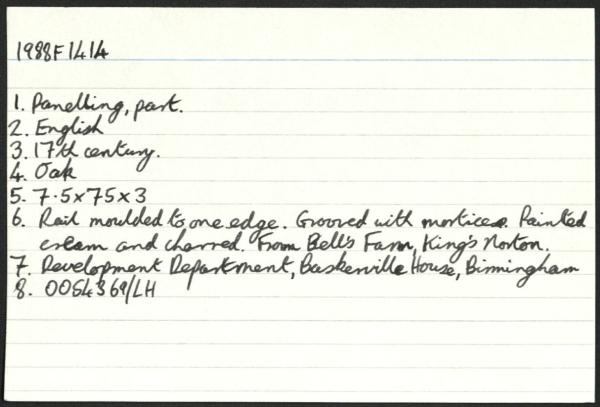 1988F1414
1. Panelling, part.
2. English
3. 17th century.
4. Oak
5. 7.5x75x3
6. Rail moulded to one edge. Grooved with mortices. Painted
cream and charred. From Bell's Farm, King's Norton.
7. Development Department, Baskerville House, Birmingham
8. OOS4369/LH